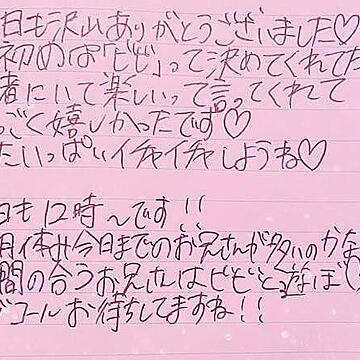 日も沢山ありがとうございました♡
初めは「ビビ」って決めてくれてた
者にいて楽しいって言ってくれて
ごく嬉しかったです♡
たいっぱいイチャイチャしようね♡
日も12時〜です!!
月休み今日までのお兄さんが多いのかな
間の合うお兄さんはビビと遊ぼ
コールお待ちしてますね!!